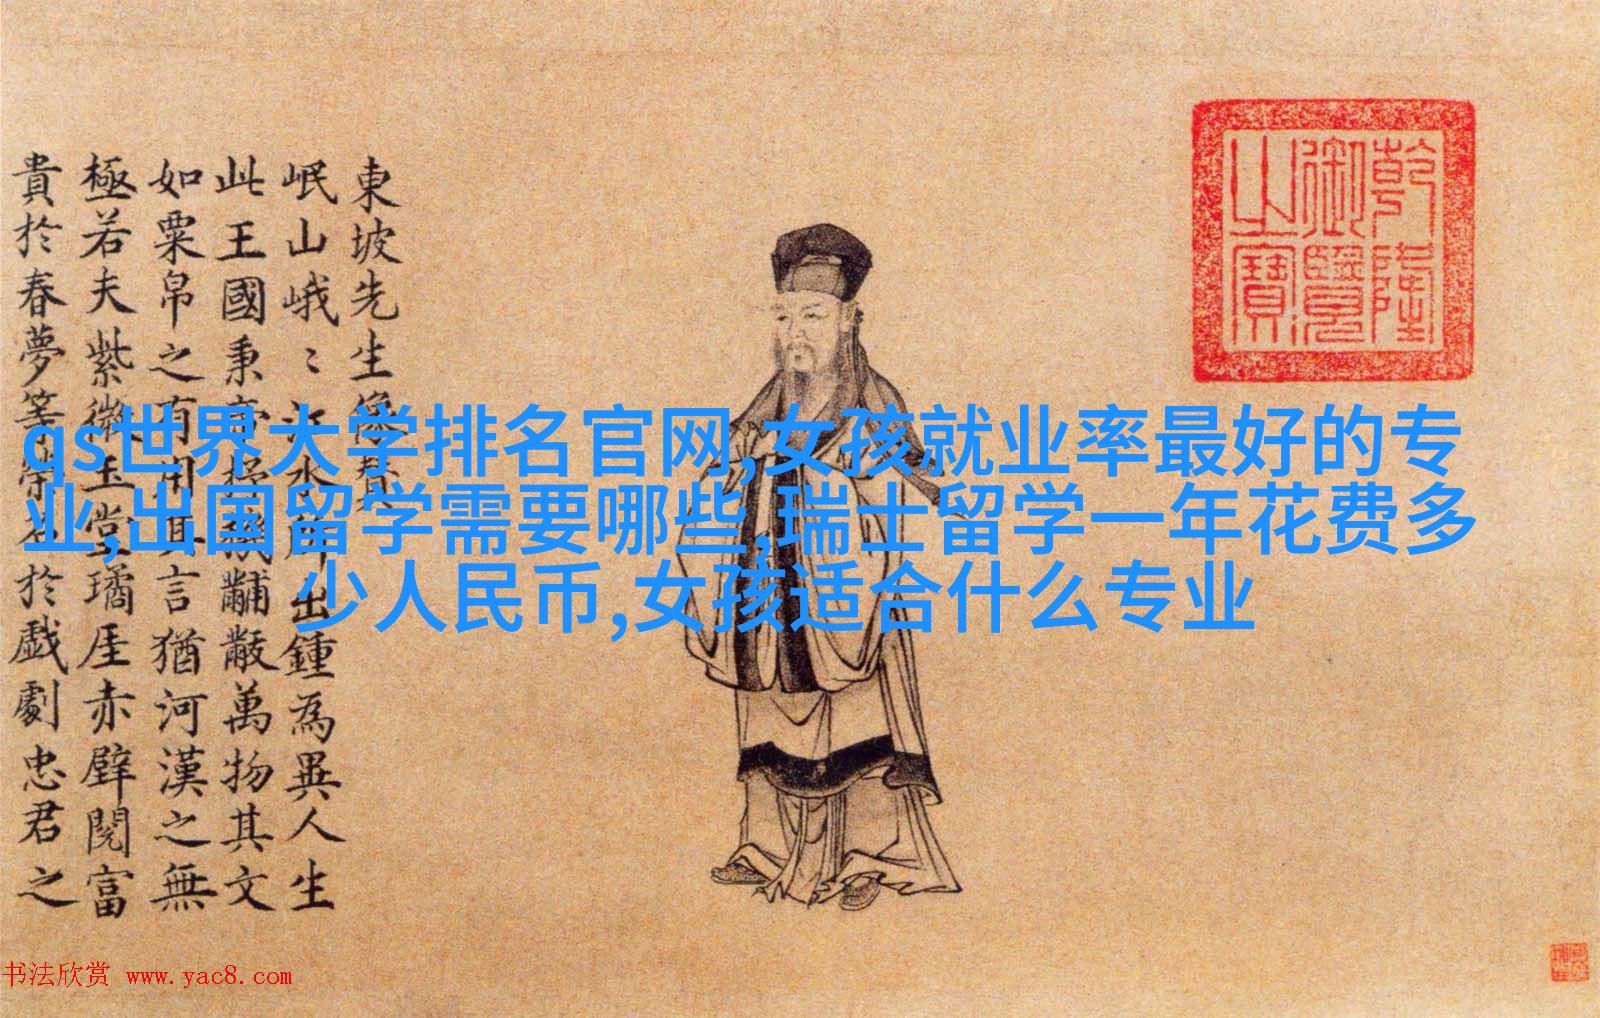 東坡先生像贊
岷山峨〻江水所出鍾為異人生
此王國秉帝杼機黼黻萬物其文
如粟帛之有用其言猶河漢之無
極若夫紫微玉堂璚厓赤壁閱富
貴於春夢等榮名於戲劇忠君之
乾隆
御覽
之寶
qs世界大学排名官网,女孩就业率最好的专
业,出国留学需要哪些,瑞士留学一年花费多
少人民币,女孩适合什么专业
书法欣赏 www.yac8.com